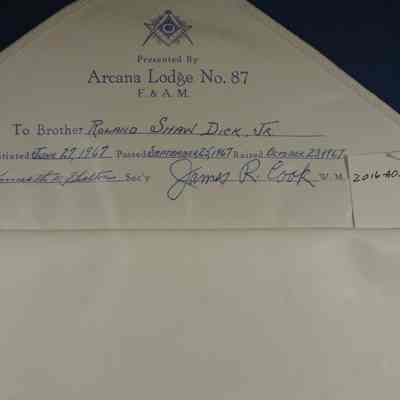 G
Presented By
Arcana Lodge No. 87
F. & A. M.
To Brother Roland Shaw Dick, Jr.
itiated June 27, 1967 Passed September 25, 1967 Raised October 23, 1967
Sec'y James R. Cook W. M. 2016-A0